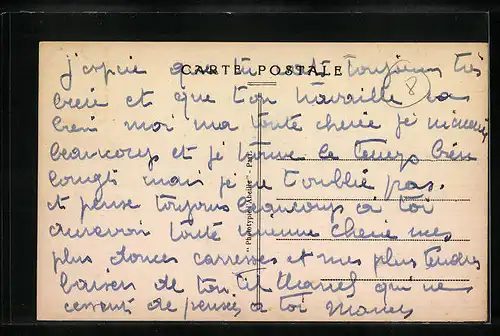 CARTE POSTALE
j'espere que tu vas toujours très
bien et que ton travaille va
bien moi ma toute cherie je m'ennui
beaucoup et je trouve le temps bien
longt mais je ne t'oublie pas.
et pense toujours beaucoup a toi
au revoir toute mienne cherie mes
plus douces caresses et mes plus tendres
baisers de ton Tit Marcel qui ne
cessent de penser a toi Marcel
8
"Phototypie Abeille" - Paris